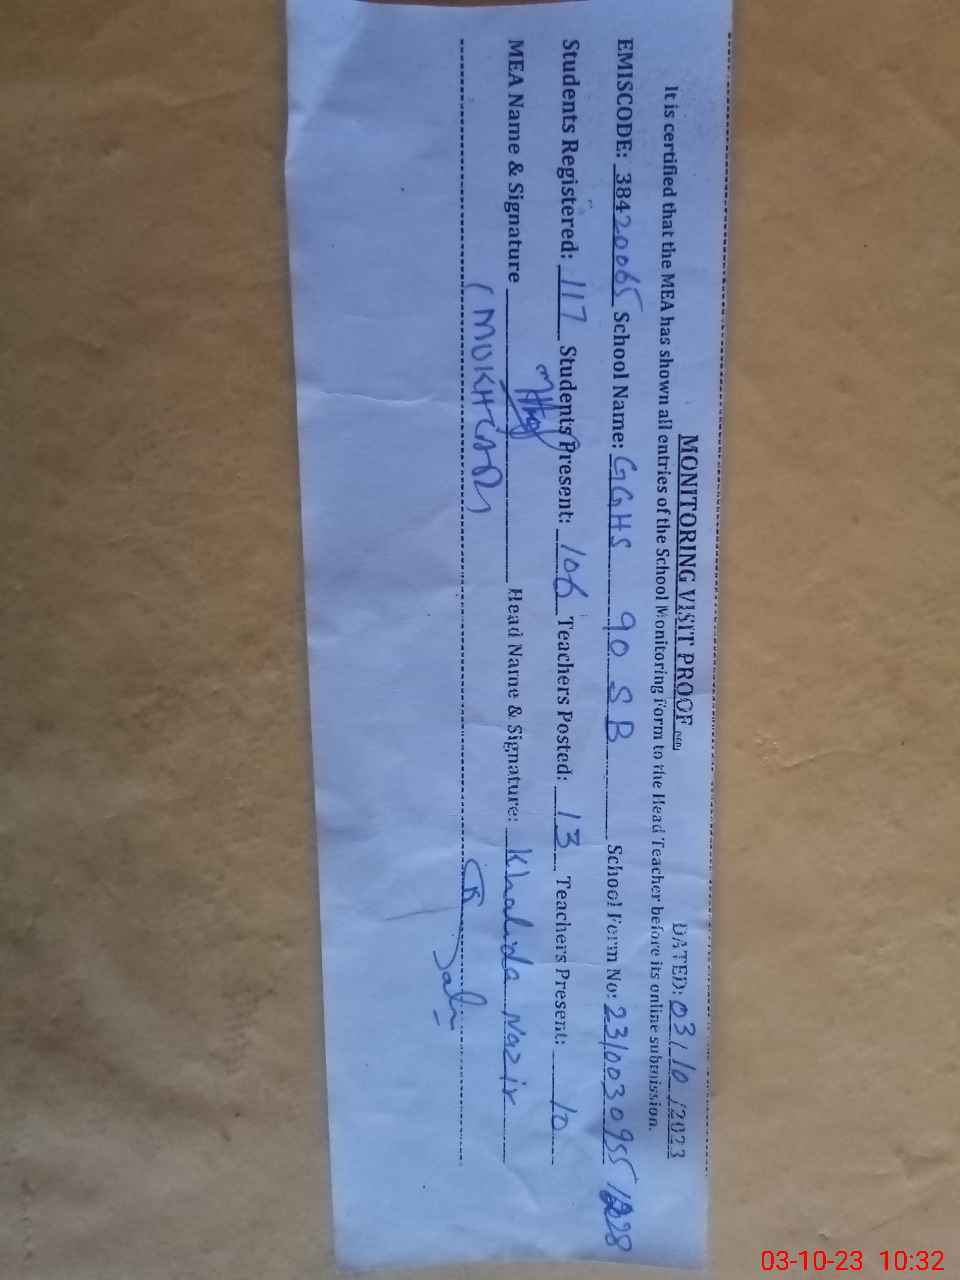 MONITORING VISIT PROOF DATED: 03/10/2023
It is certified that the MEA has shown all entries of the School Monitoring Form to the Head Teacher before its online submission.
EMISCODE: 38420065 School Name: GGHS 90 SB School Form No: 2310030955
Students Registered: 117 Students Present: 106 Teachers Posted: 13 Teachers Present: 10
MEA Name & Signature Head Name & Signature: Khalida Nazir
03-10-23 10:32